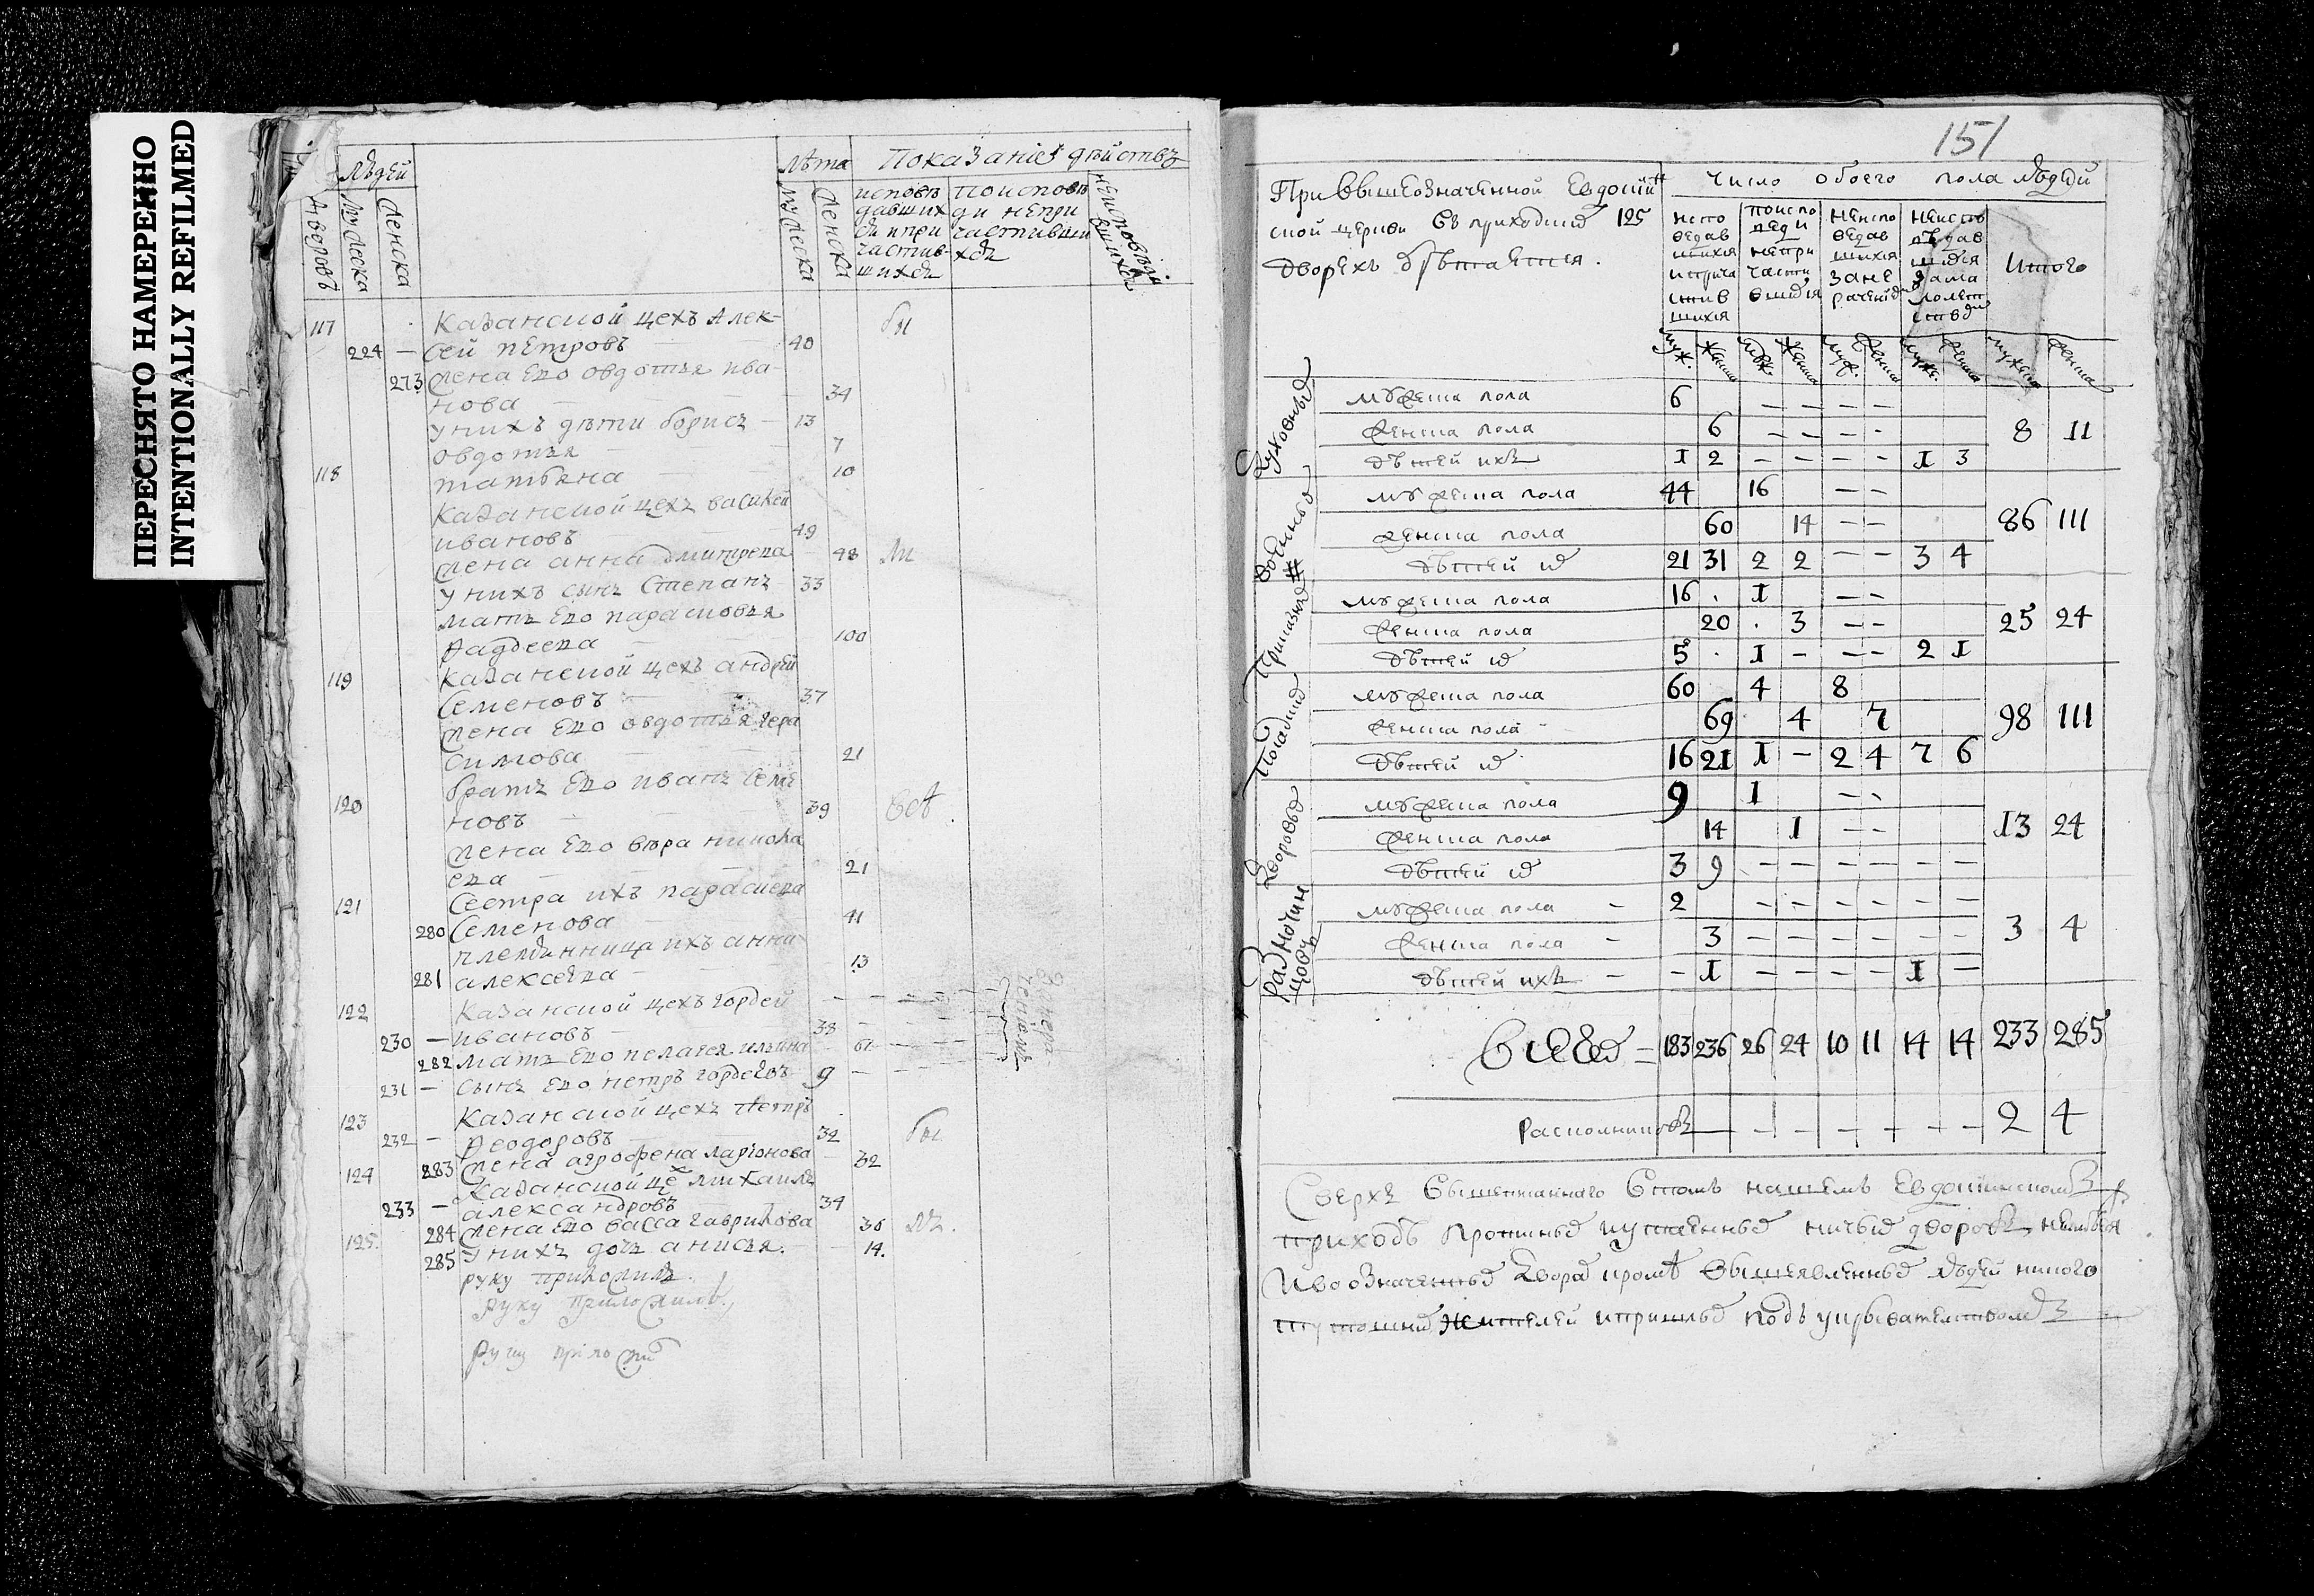 ПЕРЕСНЯТО НАМЕРЕННО
INTENTIONALLY REFILMED
людей
лѣта
Показание дѣйствъ
дворовъ
мужеска
женска
мужеска
женска
исповѣ
давших
ся и при
частив-
шихся
поисповѣ
ди непри
частивши
хся
117
Казанской цехъ Алек-
224 — сей петровъ 40
бы
273 жена ево овдотья ива-
нова 34
у нихъ дѣти борисъ 13
овдотья 7
118
татьяна 10
Казанской цехъ василей
ивановъ 49
жена анна дмитрева 48
у нихъ сынъ Степанъ 33
мать ево парасковья
Фадеева 100
119
Казанской цехъ андрей
Семеновъ 37
жена ево овдотья гера
симова 21
братъ ево иванъ Семе
120
новъ 39
жена ево вѣра никола
ева 21
121
Сестра ихъ парасκева
280 Семенова 41
племянница ихъ анна
281 алексѣева 13
122
Казанской цехъ гордей
230 — ивановъ 38
282 мать ево пелагея ильина 61
231 — сынъ ево петръ гордеевъ 9
123
Казанской цехъ петръ
232 — Феодоровъ 32
бы
283 жена агрофена ларионова 32
124
Казанской це михаила
233 — александровъ 34
284 жена ево васса гаврилова 36
125.
285 у нихъ дочь анисья. 14.
руку приложилъ.
руку приложилъ
руку приложи
151
При вышеозначенной Евдокий
ской церкви въ приходцкихъ 125
дворехъ обретается.
число обоего пола людей
испо
ведав
шихся
и прича
стив
шихся
поиспо
веди
непри
части
вшихся
неиспо
ведав
шихся
за не
рачениемъ
неиспо
вѣдав
шихся
за мало
летствомъ
Итого
муж. женска муж. женска муж. женска муж. женска мужеска женска
Духовныхъ
мужеска пола 6 — — — —
женска пола 6 — — — — 8 11
дѣтей ихъ 1 2 — — — — 1 3
Военныхъ
мужеска пола 44 16 — —
женска пола 60 14 — — 86 111
дѣтей их 21 31 2 2 — — 3 4
Приказныхъ
мужеска пола 16 . 1 — —
женска пола 20 . 3 — — 25 24
дѣтей их 5 . 1 — — — 2 1
Посадских
мужеска пола 60 4 8
женска пола 69 4 7 98 111
дѣтей их 16 21 1 — 2 4 7 6
Дворовых
мужеска пола 9 1 — —
женска пола 14 1 — — 13 24
дѣтей их 3 9 — — — — — —
Разночин
цовъ
мужеска пола — 2 — — — — — —
женска пола — 3 — — — — — — 3 4
дѣтей ихъ — — 1 — — — — 1 —
Всехъ = 183 236 26 24 10 11 14 14 233 285
Расколниковъ — — — — — — — 2 4
Сверхъ вышеписаннаго в томъ нашемъ Евдокиинскомъ
приходѣ протчихъ и пустыхъ ничьихъ дворовъ неимѣется
и въ означенных дворахъ кроме вышеявленныхъ людей никого
тутошних жителей и пришлых подъ укрывателствомъ